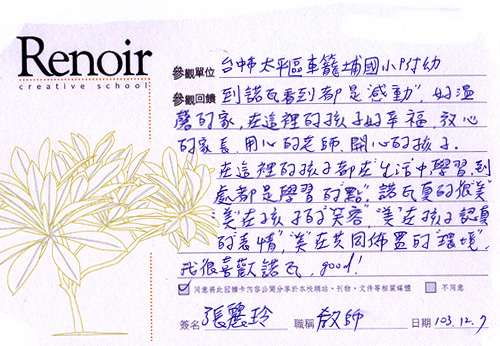 Renoir
creative school
參觀單位 台中市太平區車籠埔國小附幼
參觀回饋 到諾瓦看到都是"感動",好溫
馨的家,在這裡的孩子好幸福,放心
的家長,用心的老師,開心的孩子.
在這裡的孩子都在"生活"中學習,到
處都是學習的"點",諾瓦真的很"美"
"美"在孩子的"笑容","美"在孩子認真
的"表情","美"在共同佈置的"環境",
我很喜歡諾瓦,good!
☑ 同意將此回饋卡內容公開分享於本校網站、刊物、文件等相關媒體 □ 不同意
簽名 張麗玲 職稱 教師 日期 103.12.9